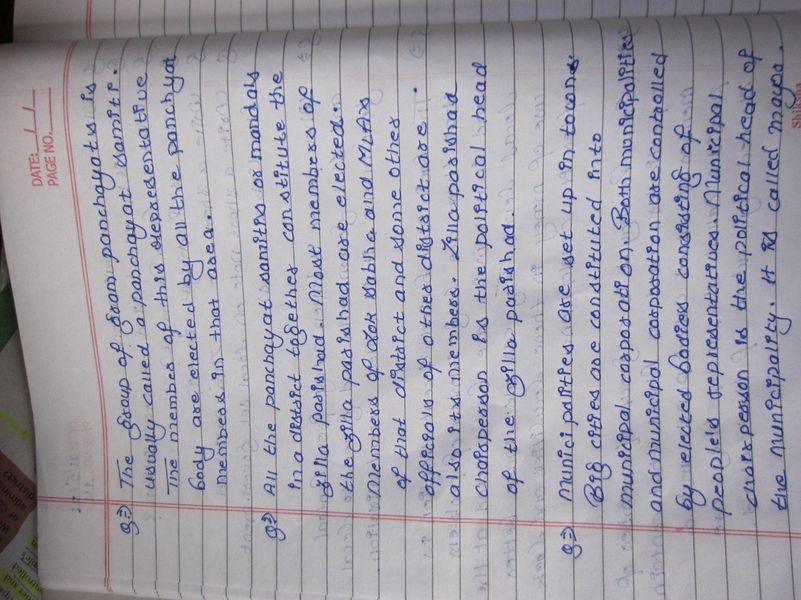 DATE: / /
PAGE NO.
Q⇒ The group of gram panchayats is
usually called a panchayat samiti.
The member of this representative
body are elected by all the panchyat
members in that area.
Q⇒ All the panchayat samitis or mandals
in a district together constitute the
zilla parishad. Most members of
the zilla parishad are elected.
Members of Lok sabha and MLAs
of that district and some other
officials of other district are
also its members. Zilla parishad
chairperson is the political head
of the zilla parishad.
Q⇒ Municipalities are set up in towns.
Big cities are constituted into
municipal corporation. Both municipalities
and municipal corporation are controlled
by elected bodies consising of
people's representatives. Municipal
chairperson is the political head of
the municipality. It is called mayor.